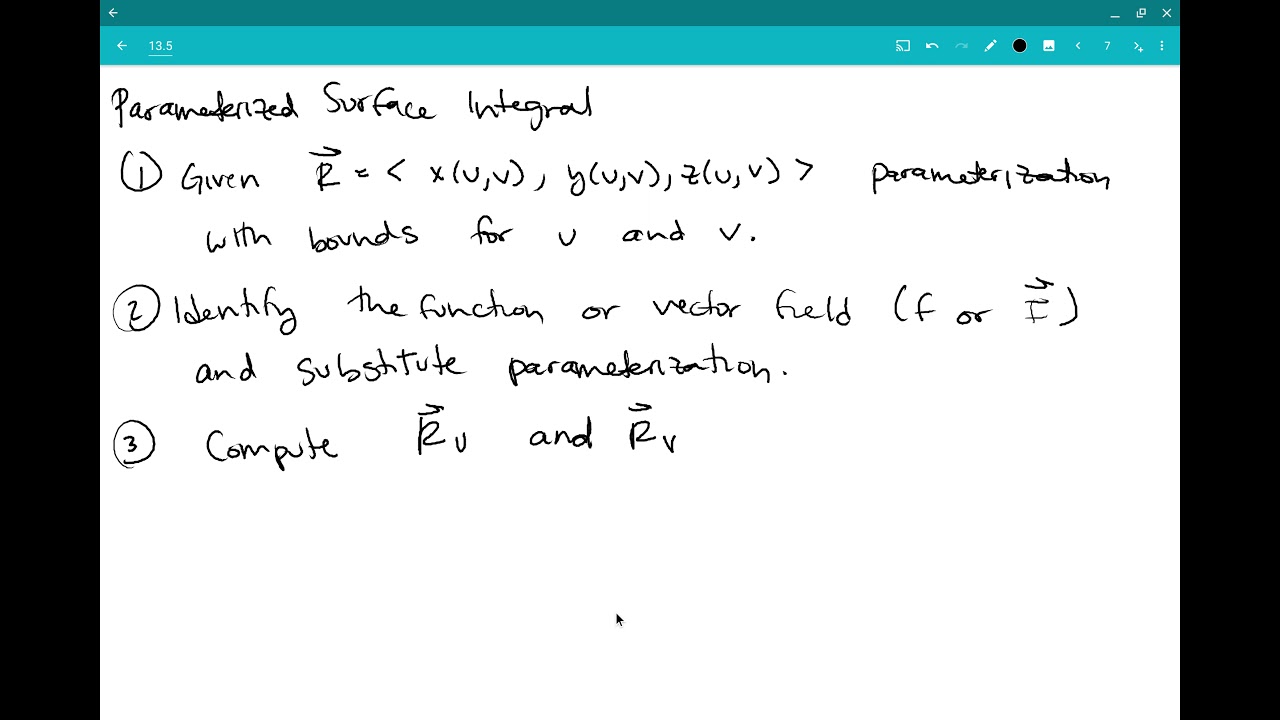 13.5
7
Parameterized Surface Integral
① Given R⃗ = < x(u,v), y(u,v), z(u,v) > parameterization
with bounds for u and v.
② Identify the function or vector field (f or F⃗)
and substitute parameterization.
③ Compute R⃗ᵤ and R⃗ᵥ